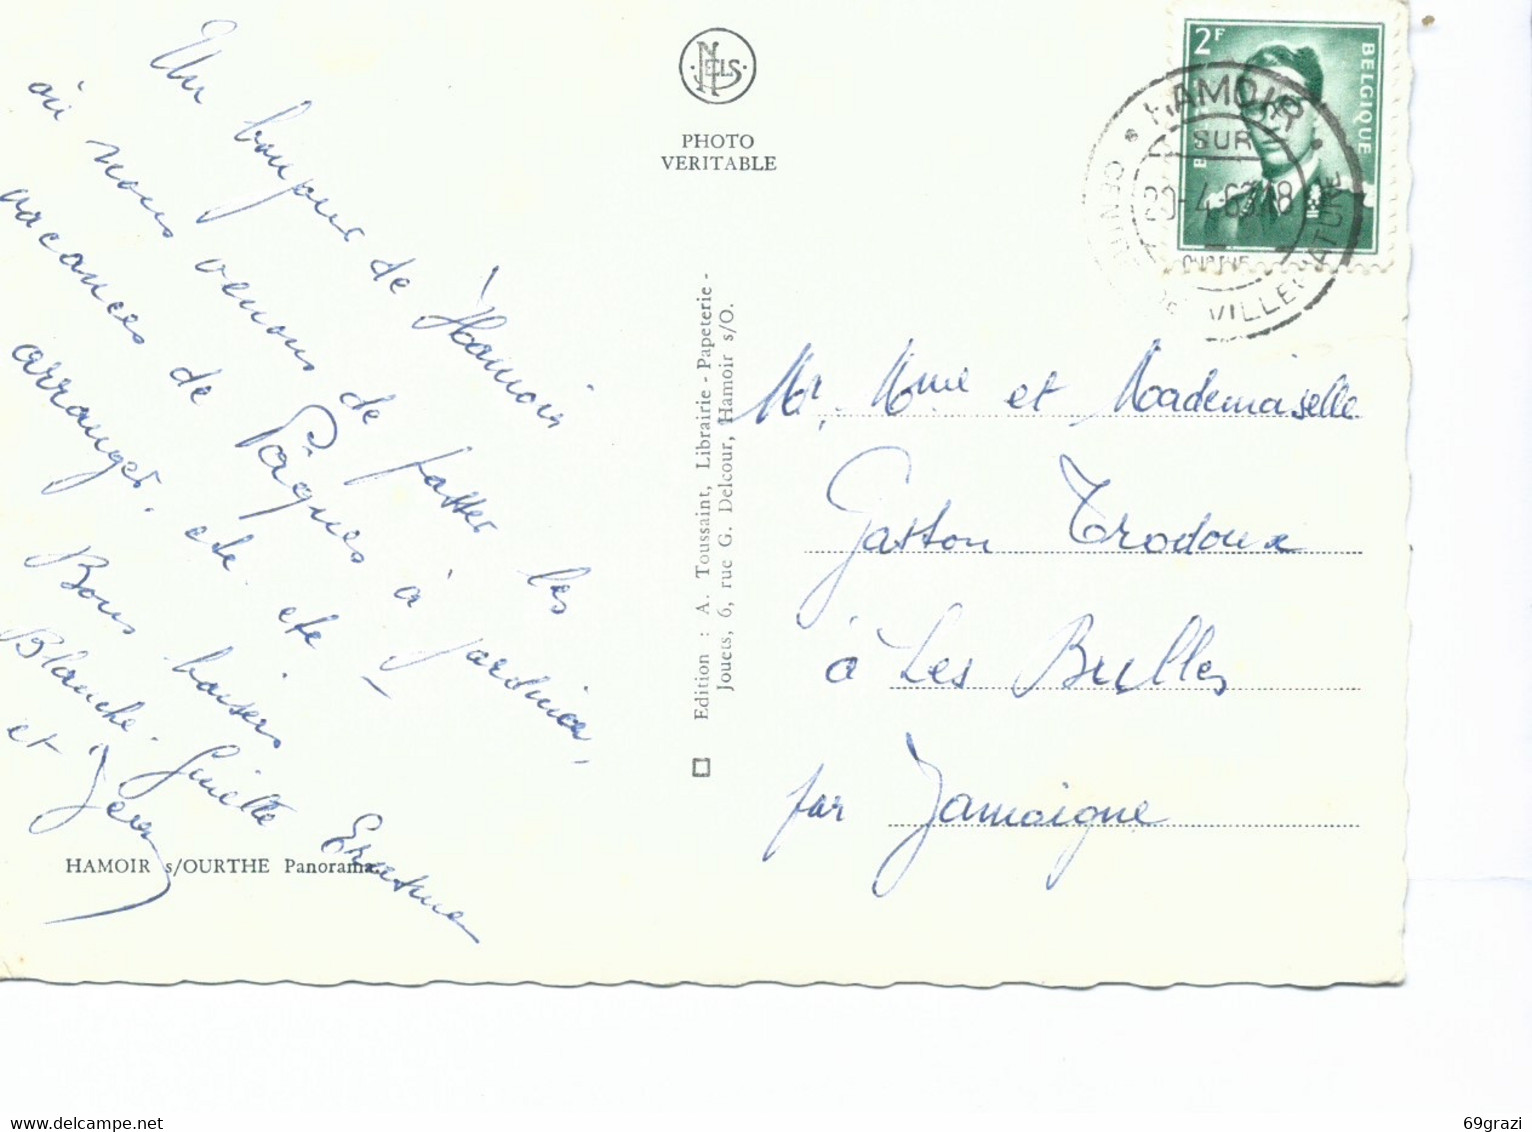 Un bonjour de Hamoir
où nous venons de passer les
vacances de Pâques à jardiner,
arranger, etc. etc –
Bons baisers
Blanche. Guiette Erasme
et Jean
HAMOIR s/OURTHE Panorama
NELS
PHOTO
VERITABLE
Edition : A. Toussaint, Librairie - Papeterie -
Jouets, 6, rue G. Delcour, Hamoir s/O.
2F
BELGIQUE
HAMOIR
SUR
20-4-63 18
OURTHE
CENTRE DE VILLEGIATURE
Mr. Mme et Mademaiselle
Gaston Trodoux
à Les Bulles
par Jamoigne
Delcampe.net
69grazi